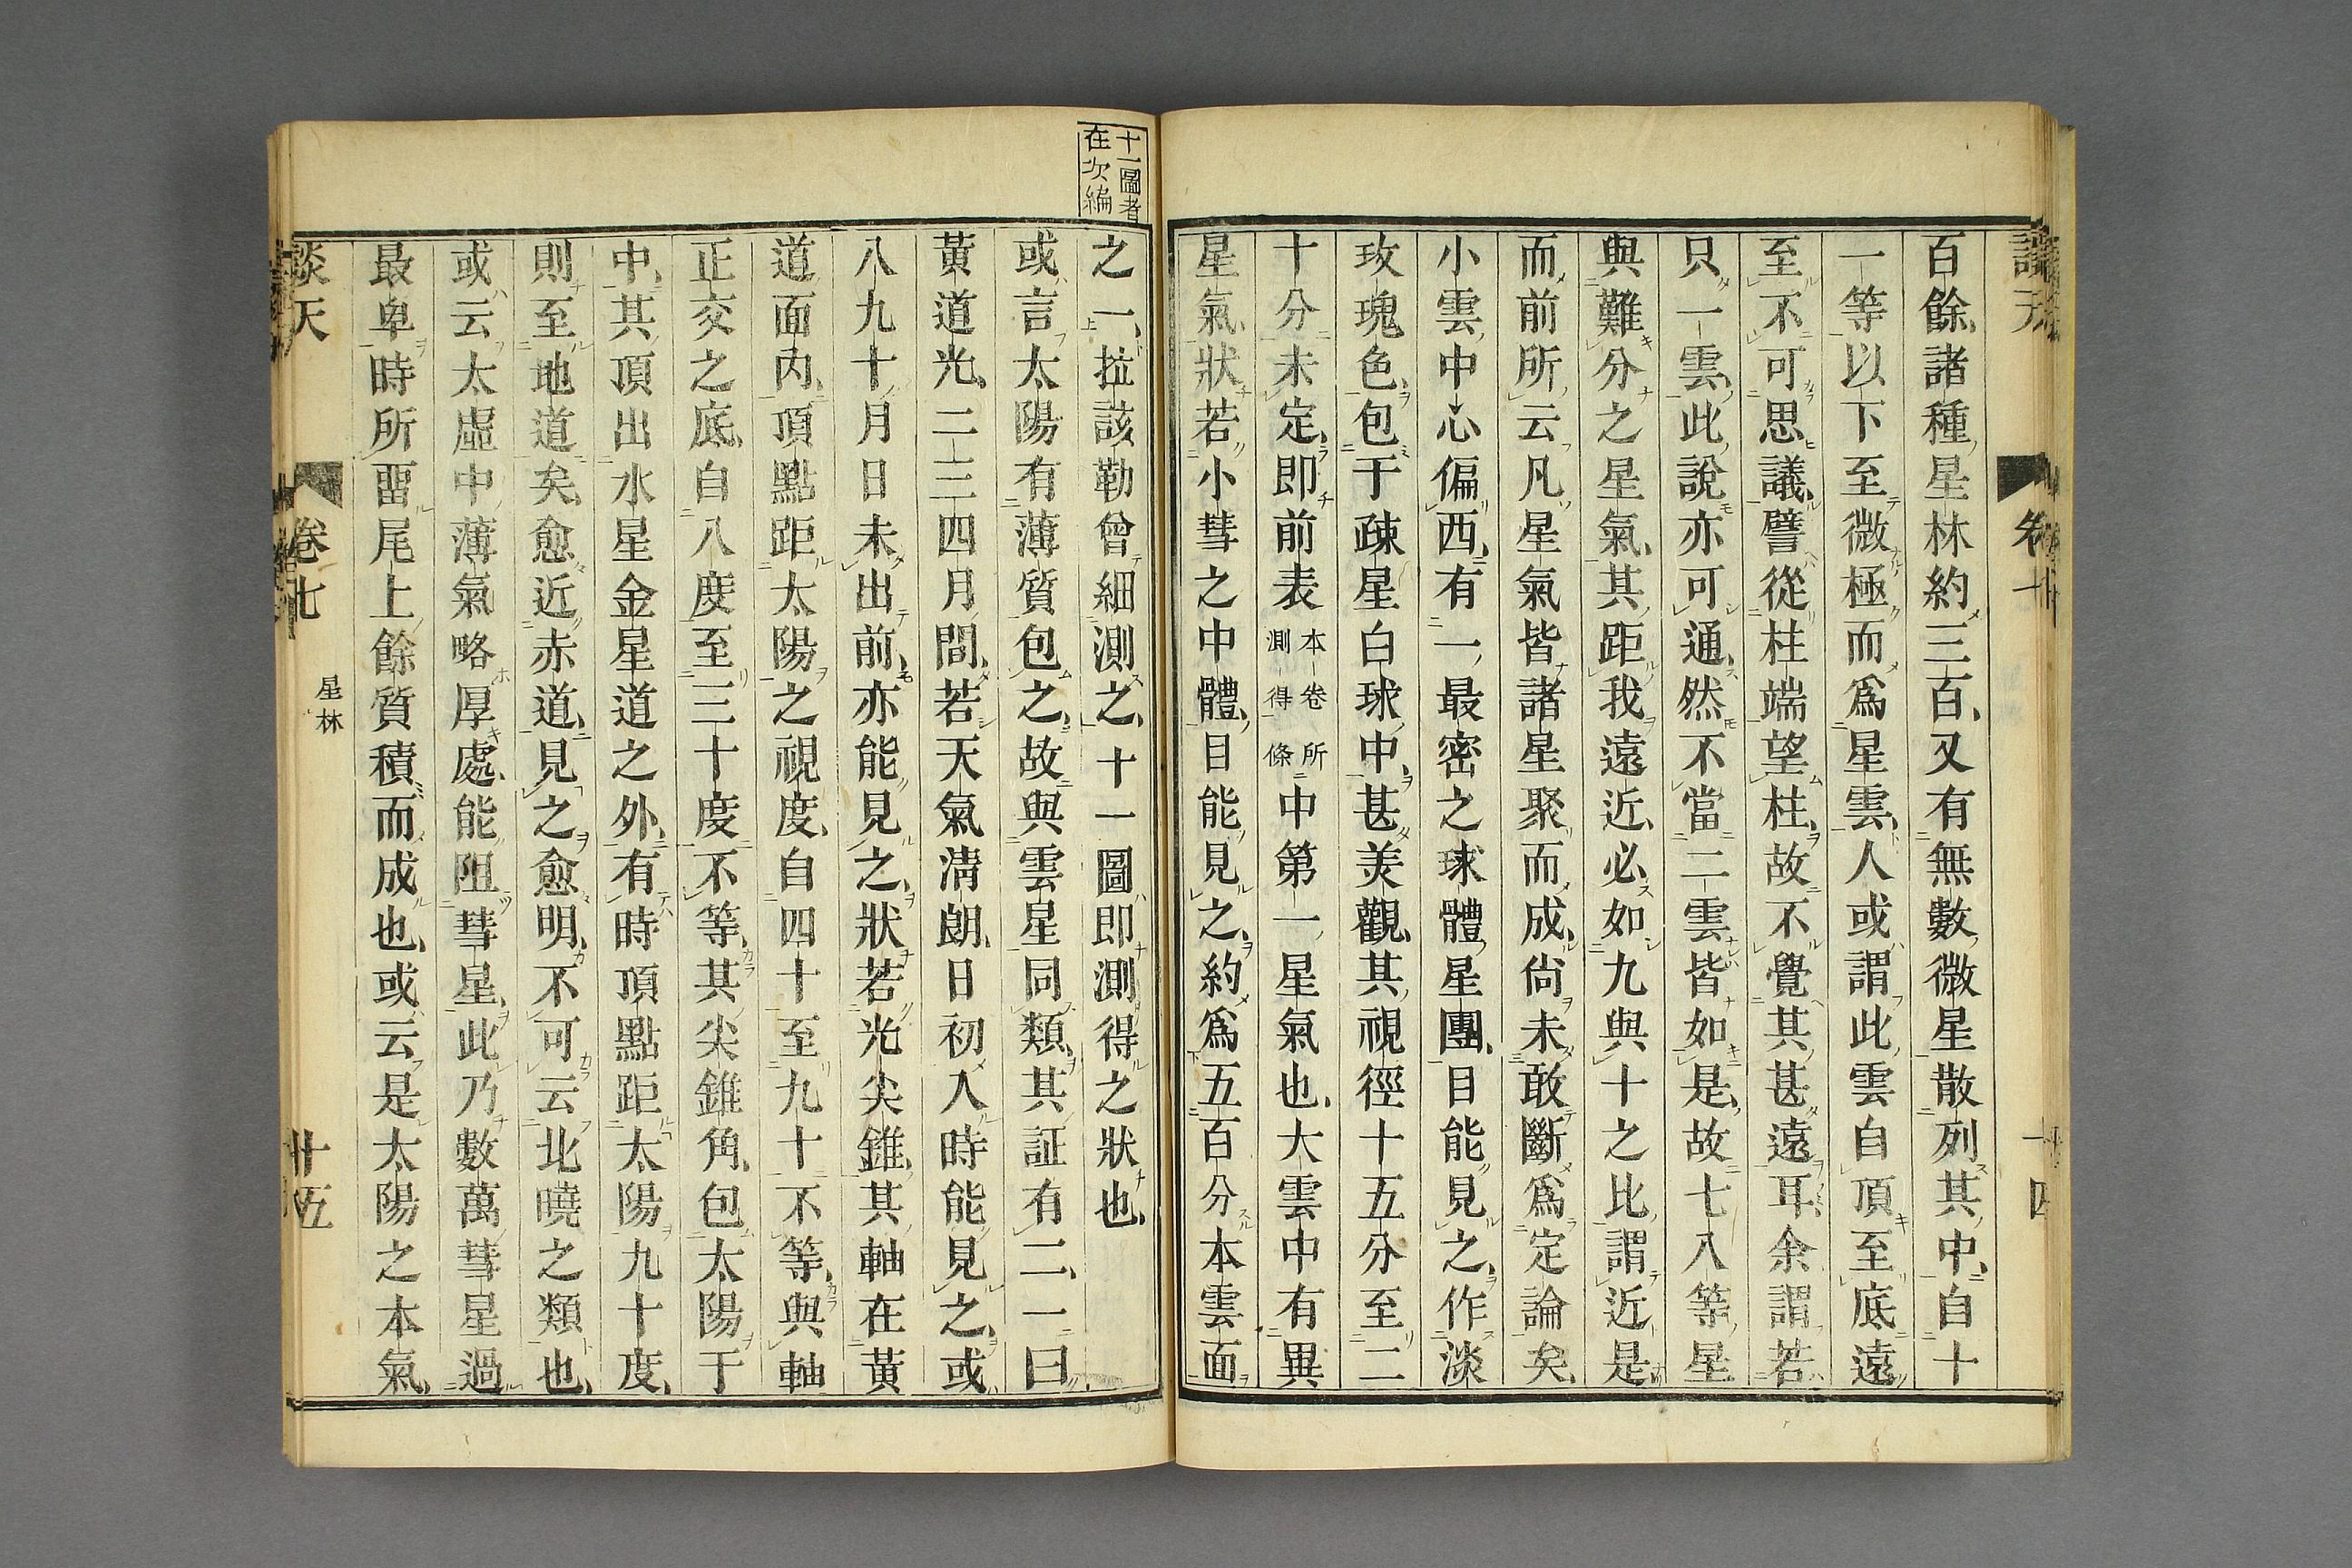 百餘諸種星林約三百又有無數微星散列其中自十
一等以下至微極而爲星雲人或謂此雲自頂至底遠
至不可思議譬從柱端望柱故不覺其甚遠耳余謂若
只一雲此說亦可通然不當二雲皆如是故七八等星
與難分之星氣其距我遠近必如九與十之比謂近是
而前所云凡星氣皆諸星聚而成尙未敢斷爲定論矣
小雲中心偏西有一最密之球體星團目能見之作淡
玫瑰色包于疎星白球中甚美觀其視徑十五分至二
十分未定即前表本卷所測得條中第一星氣也大雲中有異
星氣狀若小彗之中體目能見之約爲五百分本雲面
十一圖者
在次編
之一拉該勒曾細測之十一圖即測得之狀也
或言太陽有薄質包之故與雲星同類其証有二一曰
黃道光二三四月間若天氣淸朗日初入時能見之或
八九十月日未出前亦能見之狀若光尖錐其軸在黃
道面内頂點距太陽之視度自四十至九十不等與軸
正交之底自八度至三十度不等其尖錐角包太陽于
中其頂出水星金星道之外有時頂點距太陽九十度
則至地道矣愈近赤道見之愈明不可云北曉之類也
或云太虛中薄氣略厚處能阻彗星此乃數萬彗星過
最卑時所畱尾上餘質積而成也或云是太陽之本氣
談天 卷七 星林 廿五